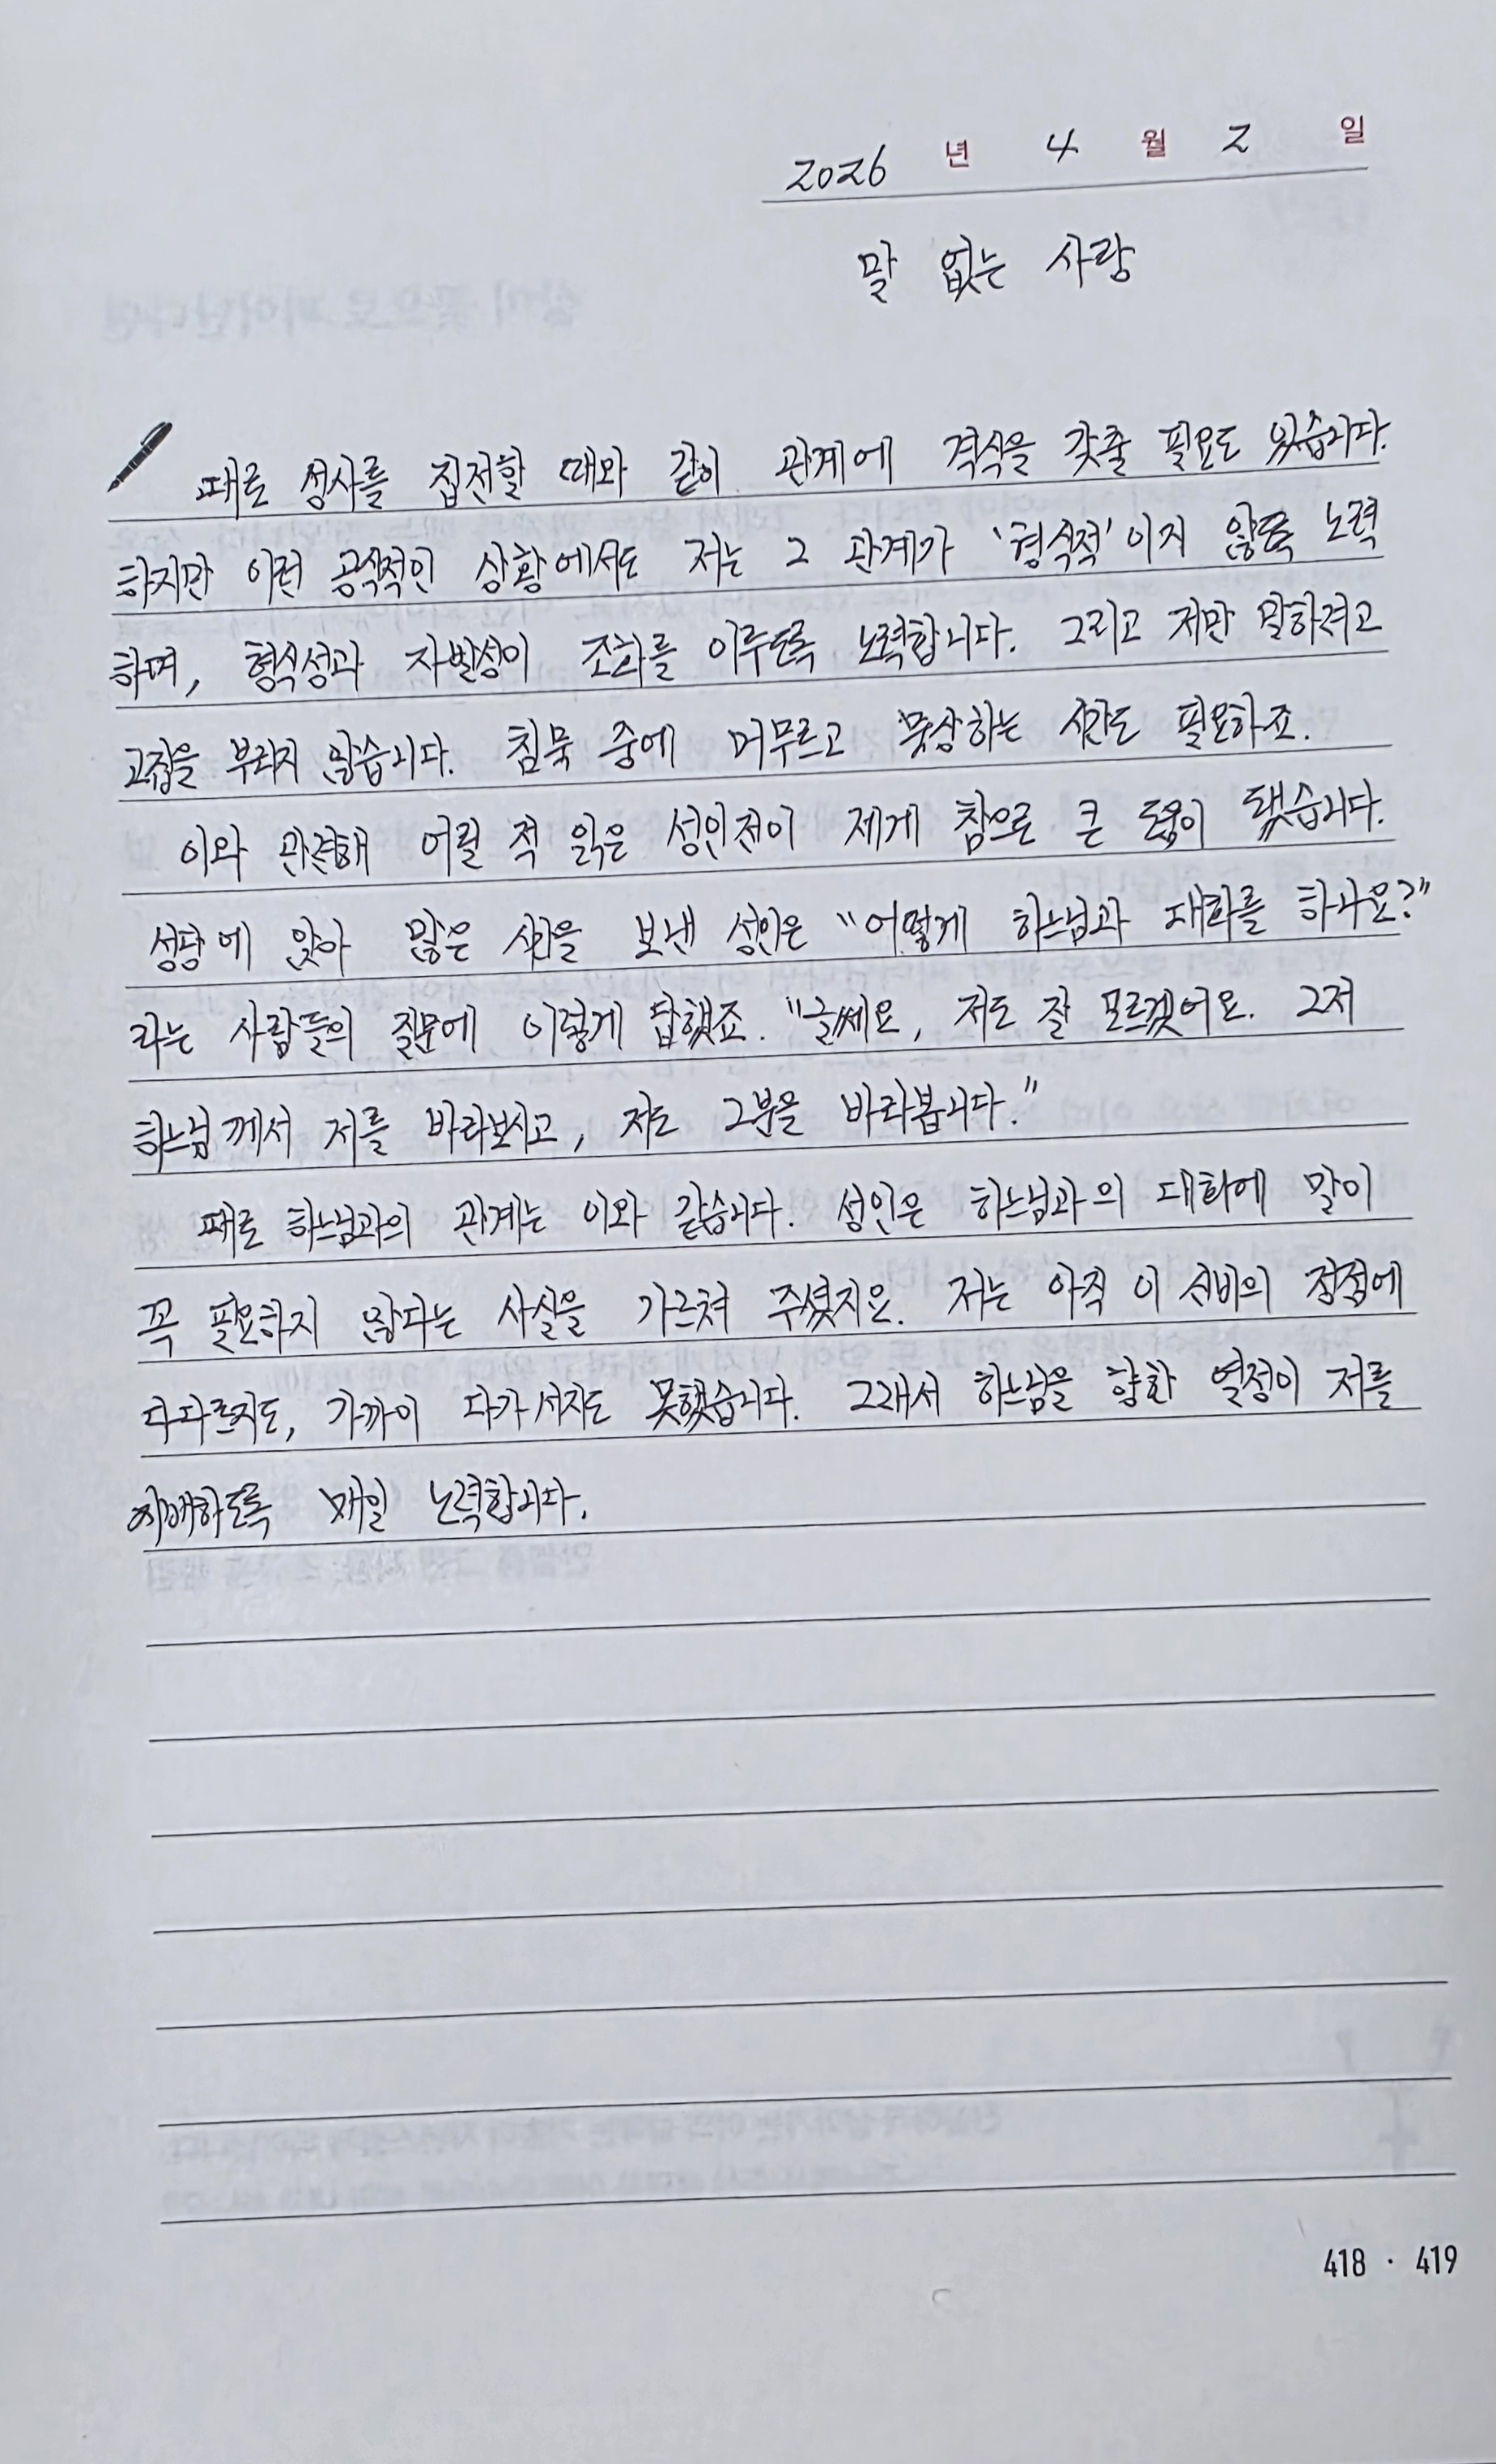 2026 년 4 월 2 일
말 없는 사랑
때로 성사를 집전할 때와 같이 관계에 격식을 갖출 필요도 있습니다.
하지만 이런 공식적인 상황에서도 저는 그 관계가 '형식적'이지 않도록 노력
하며, 형식성과 자발성이 조화를 이루도록 노력합니다. 그리고 저만 말하려고
고집을 부리지 않습니다. 침묵 중에 머무르고 묵상하는 시간도 필요하죠.
이와 관련해 어릴 적 읽은 성인전이 제게 참으로 큰 도움이 됐습니다.
성당에 앉아 많은 시간을 보낸 성인은 "어떻게 하느님과 대화를 하나요?"
라는 사람들의 질문에 이렇게 답했죠. "글쎄요, 저도 잘 모르겠어요. 그저
하느님께서 저를 바라보시고, 저도 그분을 바라봅니다."
때로 하느님과의 관계는 이와 같습니다. 성인은 하느님과의 대화에 말이
꼭 필요하지 않다는 사실을 가르쳐 주셨지요. 저는 아직 이 신비의 정점에
다다르지도, 가까이 다가서지도 못했습니다. 그래서 하느님을 향한 열정이 저를
지배하도록 매일 노력합니다.
418 · 419